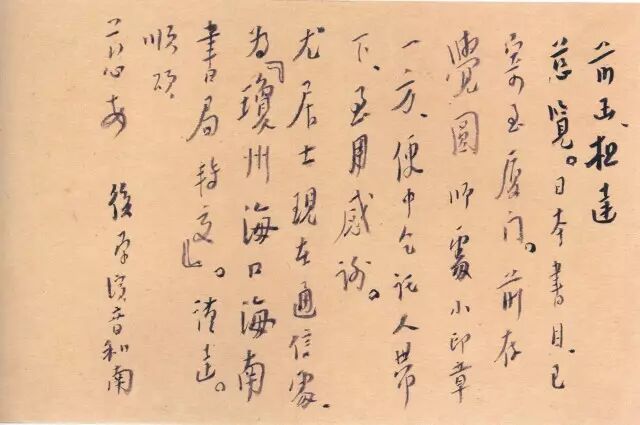 前函想達
慈覽。日本書目、已
寄至廈门。前存
覺圓師處小印章
一方、便中乞託人帶
下、至用感謝。
尤居士現在通信處、
為『瓊州海口海南
書局轉交』。達。
順頌
慈安 後學演音和南